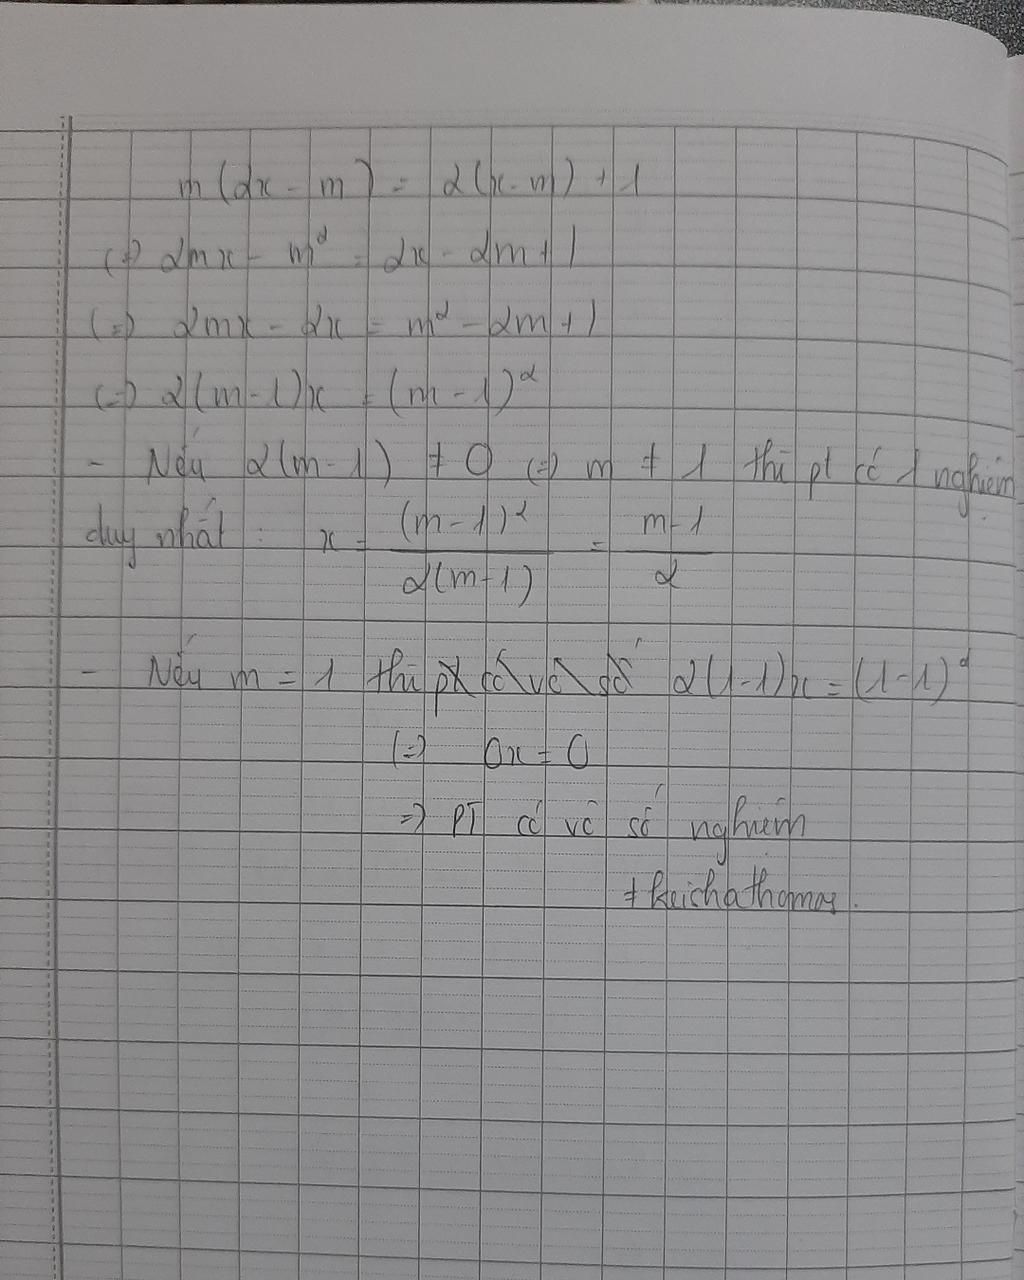 m(2x - m) = 2(x - m) + 1
(=) 2mx - m² = 2x - 2m + 1
(=) 2mx - 2x = m² - 2m + 1
(=) 2(m-1)x = (m - 1)²
- Nếu 2(m-1) ≠ 0 (=) m ≠ 1 thì pt có 1 nghiệm
duy nhất : x = (m-1)² / 2(m-1) = m-1 / 2
- Nếu m = 1 thì pt có vô số 2(1-1)x = (1-1)²
(=) 0x = 0
=) PT có vô số nghiệm